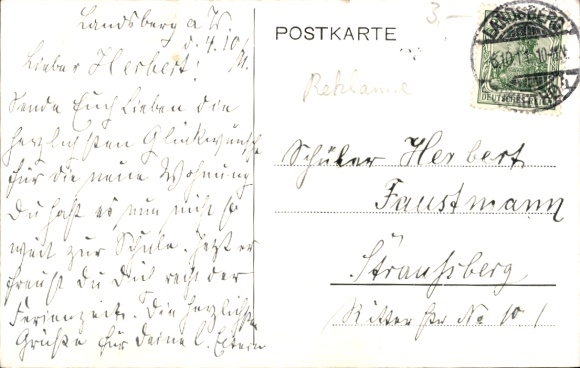 Landsberg a. W.
d. 4.10.
Lieber Herbert!
Sende Euch Lieben die
herzlichsten Glückwünsche
für die neue Wohnung
Du hast es nun nicht so
weit zur Schule. Jetzt er
freust Du Dich recht der
Ferienzeit. Die herzlichsten
Grüße für Deine l. Eltern
POSTKARTE
3.–
Reklame
LANDSBERG
DEUTSCHES REICH
Schüler Herbert
Faustmann
Straussberg
Ritter str No 10 I